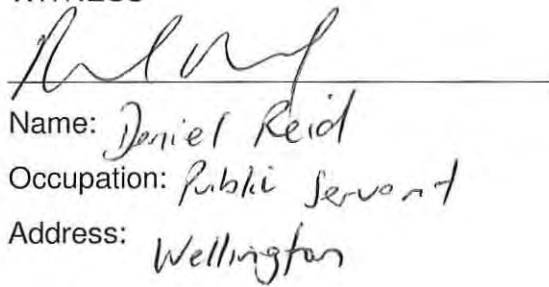 WITNESS
Name: Daniel Reid
Occupation: Public Servant
Address: Wellington